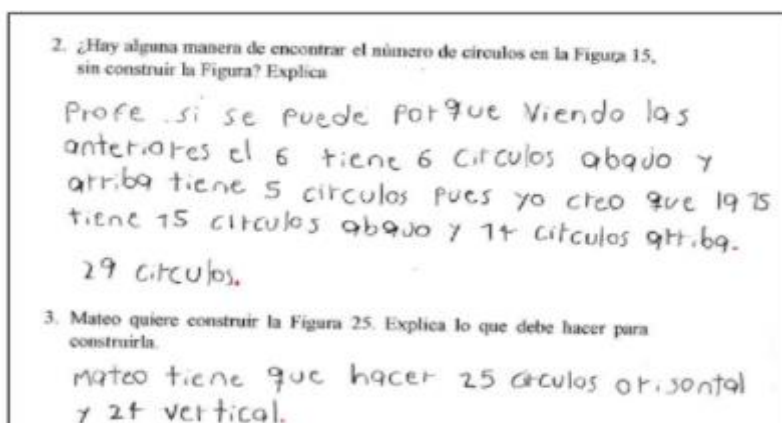 2. ¿Hay alguna manera de encontrar el número de círculos en la Figura 15,
sin construir la Figura? Explica
Profe si se puede porque viendo las
anteriores el 6 tiene 6 circulos abajo y
arriba tiene 5 circulos pues yo creo que la 15
tiene 15 circulos abajo y 14 circulos arriba.
29 circulos.
3. Mateo quiere construir la Figura 25. Explica lo que debe hacer para
construirla.
Mateo tiene que hacer 25 circulos orisontal
y 24 vertical.